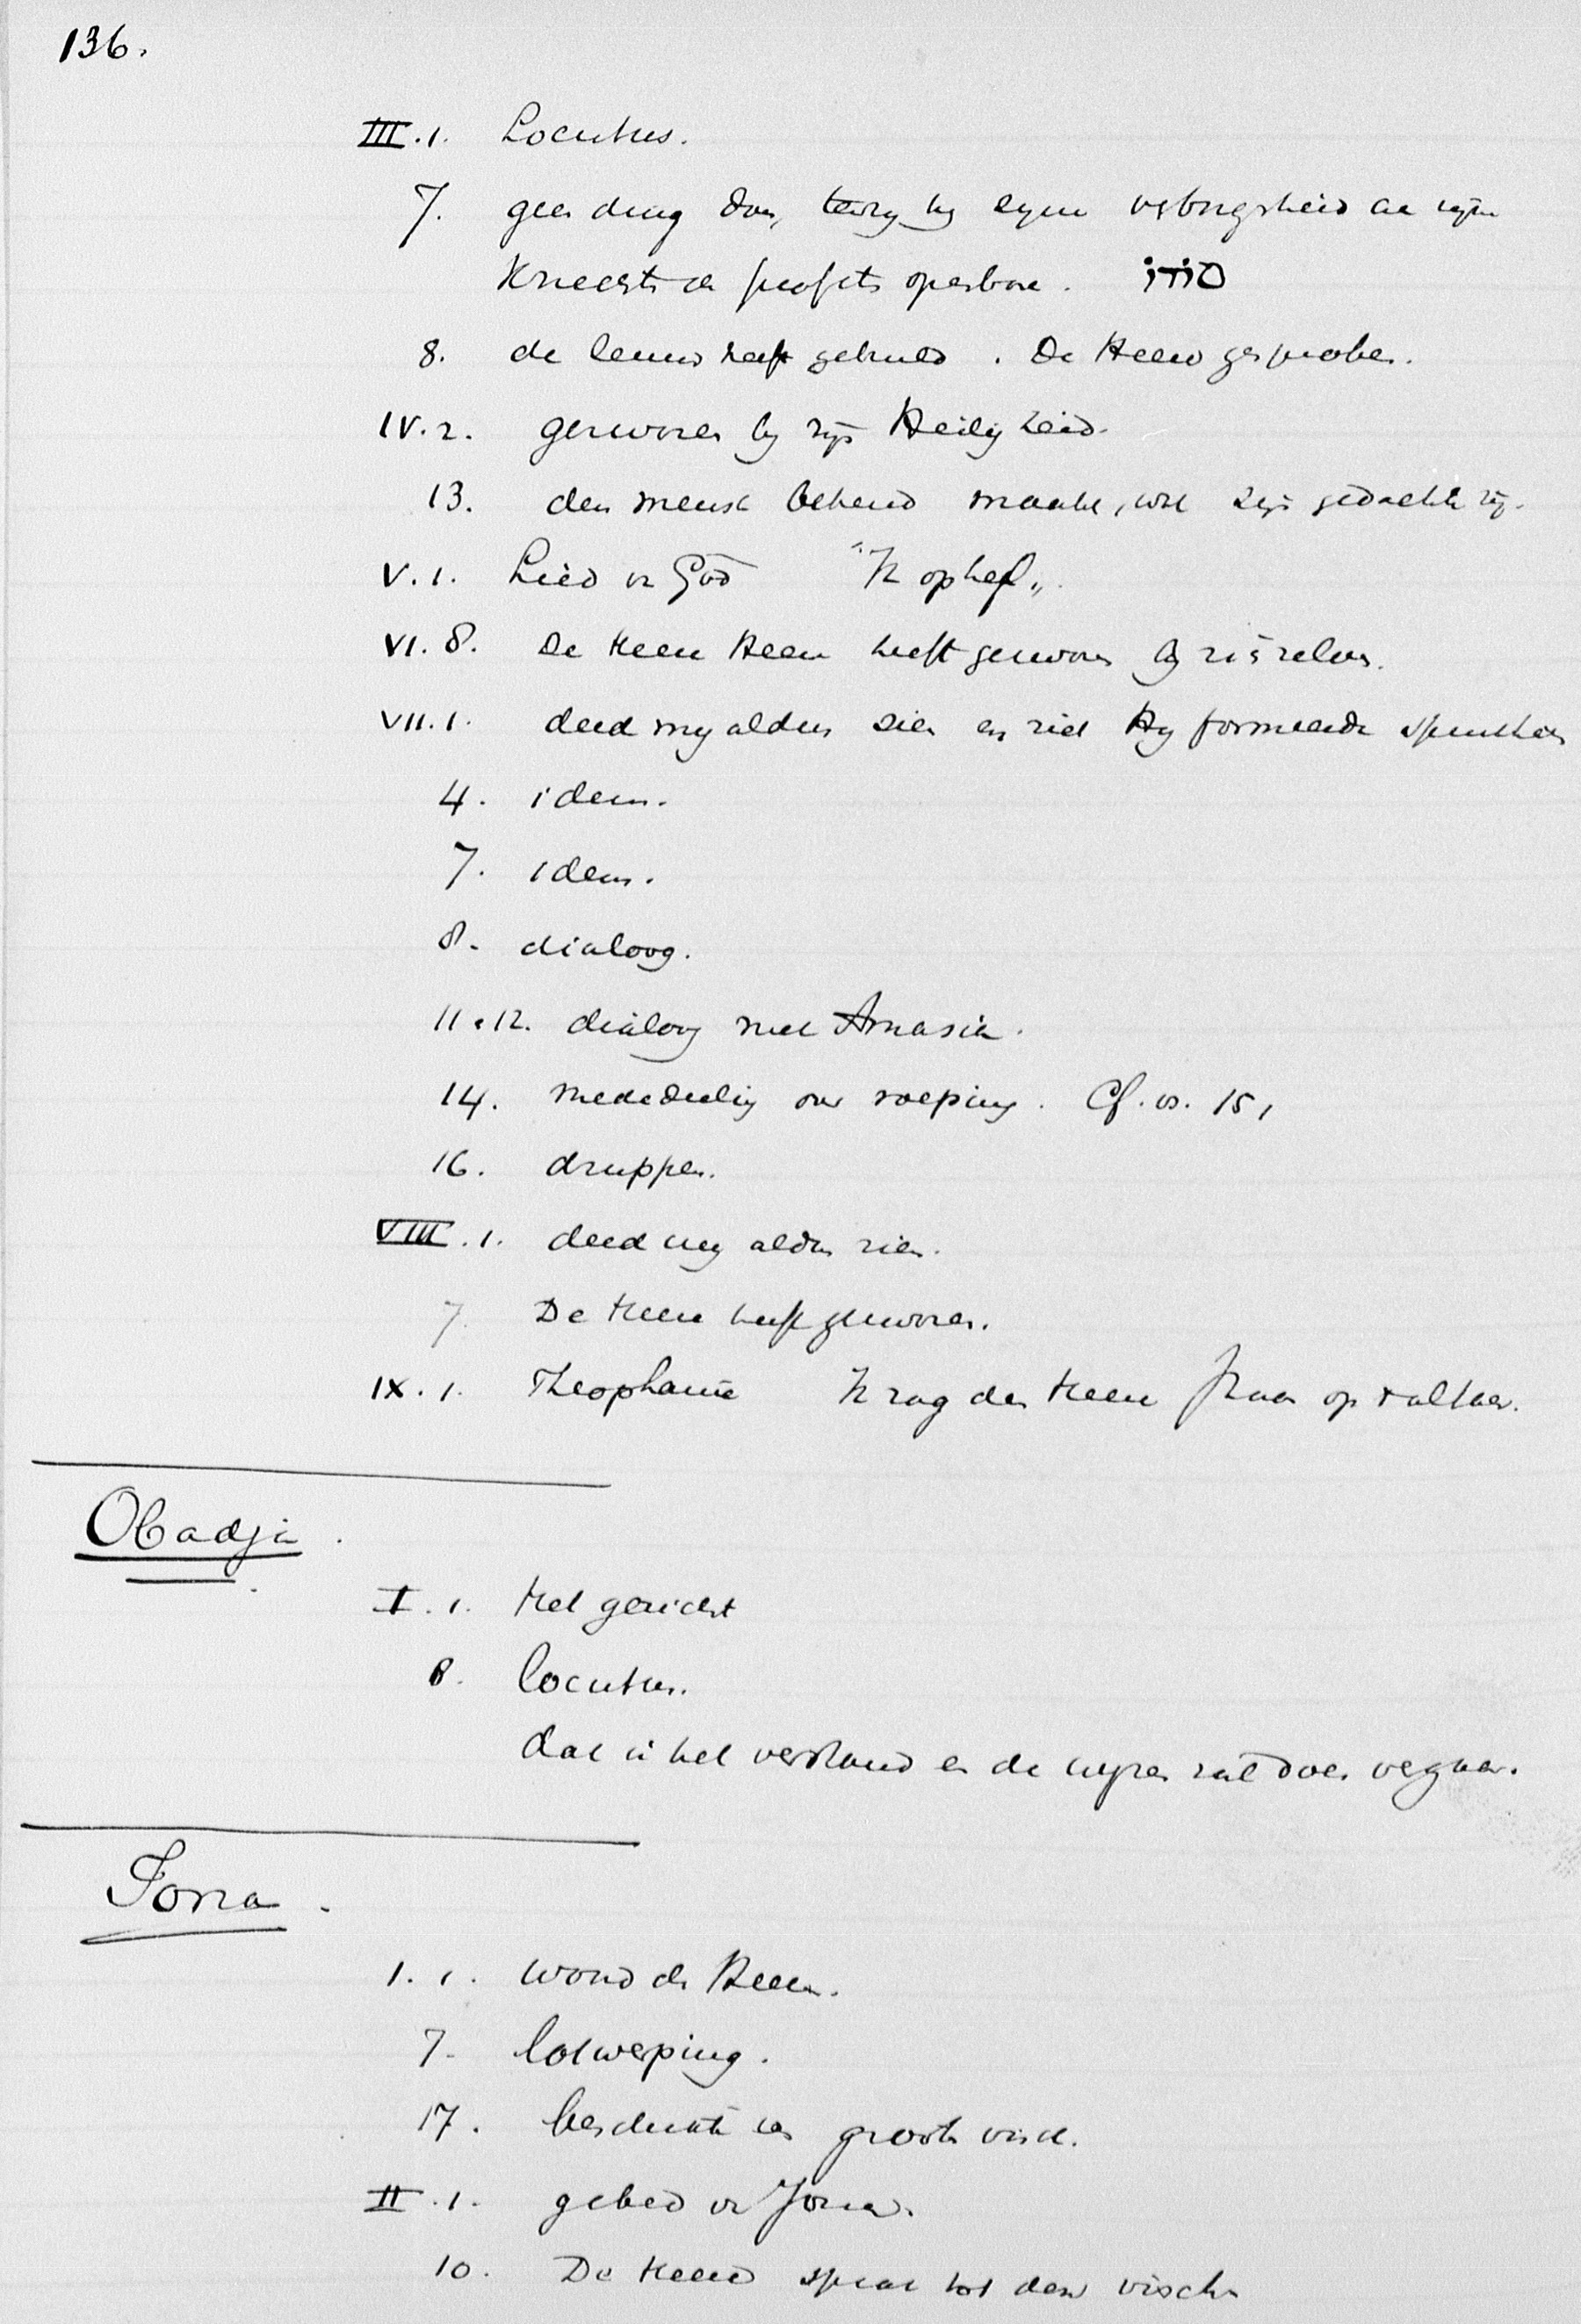 136.
III.1. Locutus.
7. geen ding doen, tenzy hy zyne verborgenheid aan zyne
Knechten de profeten openbare. סודו
8. de leeuw heeft gebruld. De Heere gesproken.
IV.2. gezworen by zyn Heiligheid.
13. den mensch bekend maakt, wat zyn gedachte zy.
V.1. Lied v God "Ik ophef".
VI.8. De Heere Heere heeft gezworen by zich zelven.
VII.1. deed my aldus zien en ziet Hy formeerde sprinkhanen
4. idem.
7. idem.
8. dialoog.
11.12. dialoog met Amasia.
14. mededeeling over roeping. Cf. vs. 15,
16. druppen.
VIII.1. deed my aldus zien.
7. De Heere heeft gezworen.
IX.1. Theophanie Ik zag den Heere staan op 't altaar.
Obadja.
I.1. Het gezicht
8. locutus.
dat ik het verstand en de wyzen zal doen vergaan.
Jona.
1.1. woord des Heeren.
7. lotwerping.
17. beschikte een grooten visch.
II.1. gebed v Jona.
10. De Heere sprak tot den visch